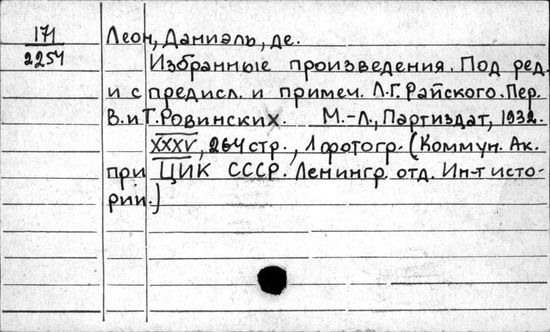 171
2254
Леон, Даниэль, де.
Избранные произведения. Под ред.
и с предисл. и примеч. Л.Г. Райского. Пер.
В. и Т. Ровинских. М.-Л., Партиздат, 1932.
XXXV, 264 стр., 1 фотогр. (Коммун. Ак.
при ЦИК СССР. Ленингр. отд. Ин-т исто-
рии.)